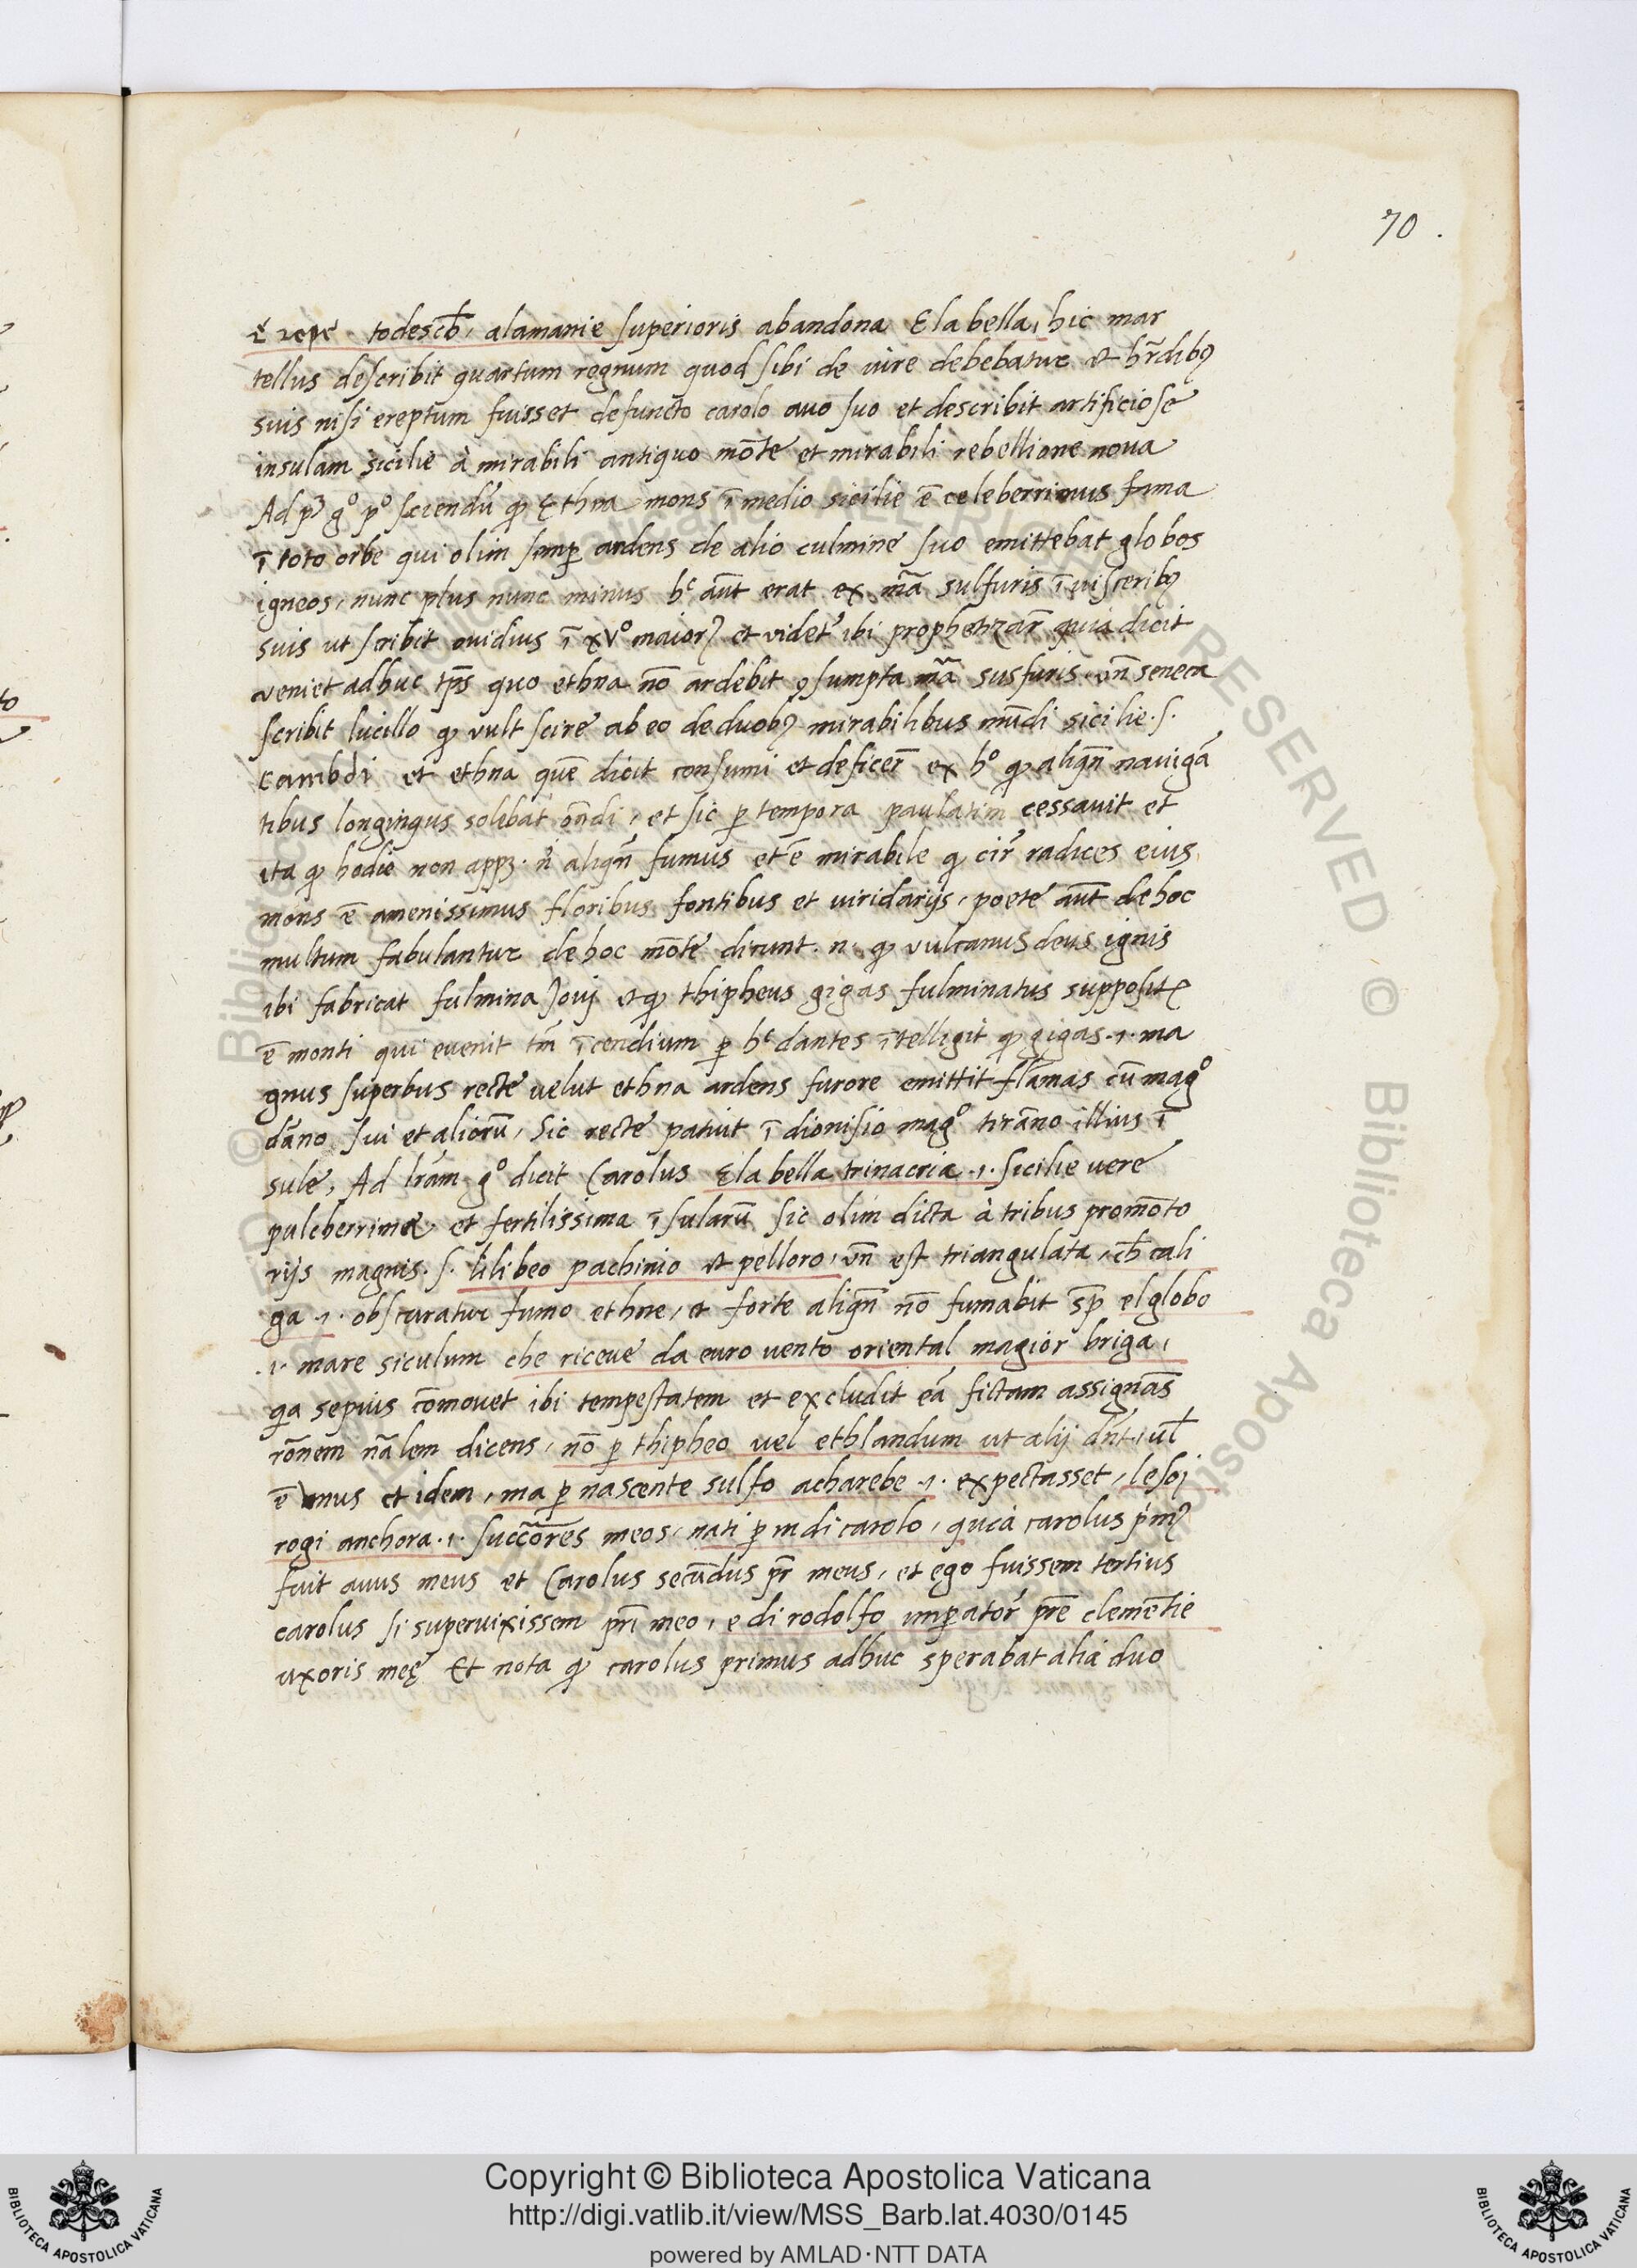 70.
todescħ, alamanie superioris abandona E la bella, hic mar
tellus describit quartum regnum quod sibi de iure debebatur et hr̄dibꝰ
suis nisi ereptum fuisset defuncto carolo auo suo et describit artificiose
insulam sicilie à mirabili antiquo mōte et mirabili rebellione noua
Ad pꝫ gº pº sciendū ꝙ Ethna mons ī medio sicilie ē celeberrimus fama
ī toto orbe qui olim semꝑ ardens de alio culmine suo emittebat globos
igneos, nunc plus nunc minus hᶜ aūt erat ex mā sulfuris ī uisceribꝰ
suis ut scribit ouidius ī xvº maiorꝫ et videtᷣ ibi prophetizār quia dicit
veniet adhuc tp̄s quo ethna nō ardebit ꝯsumpta mā susfuris. vn̄ seneca
scribit lucillo ꝙ vult scire ab eo de duobꝰ mirabilibus mūdi sicilie .s.
Carribdi et ethna quē dicit consumi et deficer̄ ex hº ꝙ aliqn̄ nauigā
tibus longinqus solebat on̄di, et sic ꝑ tempora paulatim cessauit et
ita ꝙ hodie non appꝫ. n̄ aliqn̄ fumus et ē mirabile ꝙ cir̄ radices eius
mons ē amenissimus floribus fontibus et uiridarijs, poete aūt de hoc
multum fabulantur de hoc mōte dicunt .n. ꝙ vulcanus deus ignis
ibi fabricat fulmina Jouj et ꝙ thipheus gigas fulminatus supposit9
ē monti qui euenit tm̄ īcendium ꝑ hᶜ dantes ītelligit ꝙ gigas .1. ma
gnus superbus recte velut ethna ardens furore emittit flāmas cū magº
dāno sui et aliorū, Sic recte patuit ī dionisio magº tirāno illius ī
sule, Ad lrām gº dicit Carolus E la bella trinacria .1. sicilie uere
pulcherrima et fertilissima īsularū sic olim dicta à tribus promōto
rijs magnis .s. lilibeo pachinio et pelloro, vn̄ est triangulata, cħ cali
ga .1. obscuratur fumo ethne, et forte aliqn̄ nō fumabit sp̄ el globo
.1. mare siculum che riceue da euro uento oriental magior briga,
qa sepius cōmouet ibi tempestatem et excludit eā fictam assignās
rōnem nālem dicens, nō ꝑ thipheo vel etblandum ut alij dn̄t, ul̄
ē unus et idem, ma ꝑ nascente sulfo acharebe .1. expectasset, le soj
rogi anchora .1. succōres meos, nati ꝑ m di carolo, quià carolus pͥmꝰ
fuit auus meus et Carolus secūdus pr̄ meus, et ego fuissem tertius
carolus si superuixissem prī meo, e di rodolfo imꝑator̄ prē clemētie
uxoris meę Et nota ꝙ carolus primus adhuc sperabat alia duo
Copyright © Biblioteca Apostolica Vaticana
http://digi.vatlib.it/view/MSS_Barb.lat.4030/0145
powered by AMLAD·NTT DATA
BIBLIOTECA APOSTOLICA VATICANA
BIBLIOTECA APOSTOLICA VATICANA